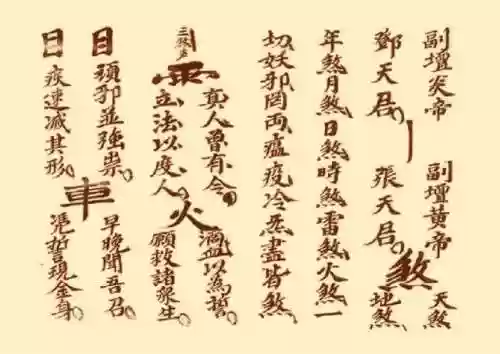 副壇炎帝
鄧天君。
丨
副壇黄帝
張天君。
煞
天煞
地煞
年煞月煞日煞時煞雷煞火煞一
切妖邪罔両瘟疫冷炁盡皆煞。
雨
真人曾有令。
立法以度人。
火
滴血以為誓。
願救諸眾生。
目
頑邪並強祟。
目
疾速减其形。
車
早晚聞吾召。
憑誓現金身。